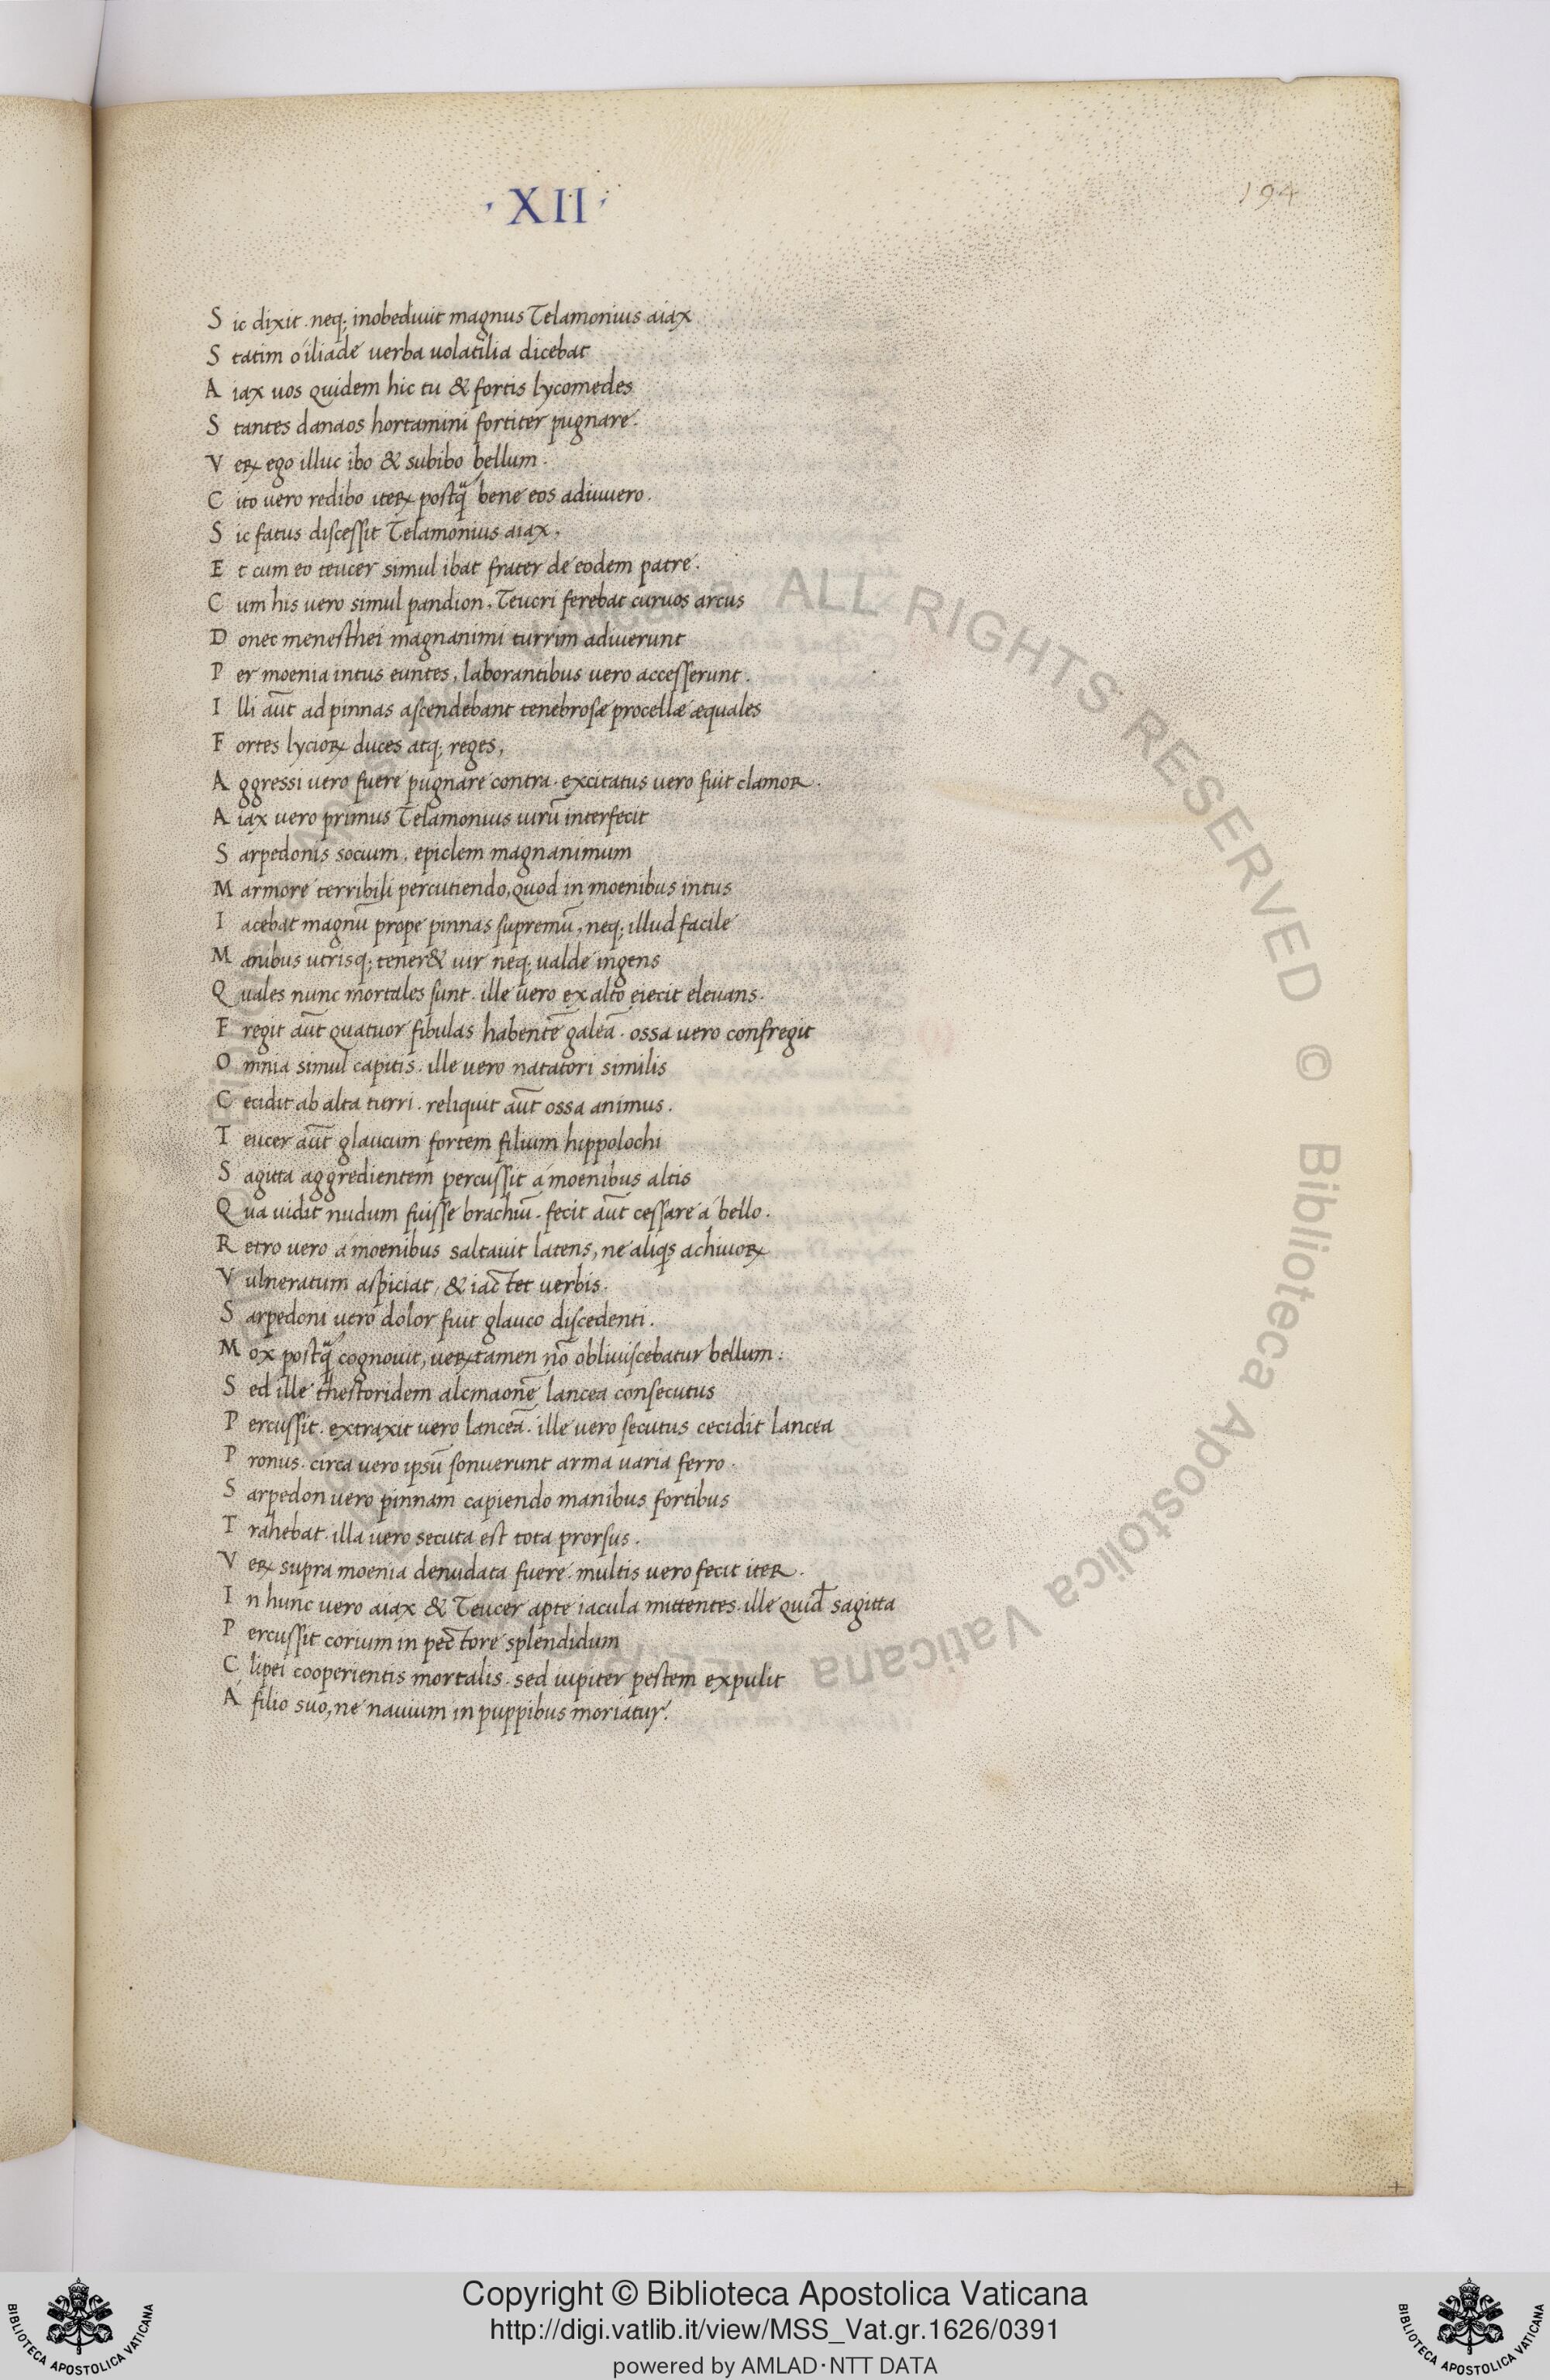 · XII ·
194
S ic dixit . neq; inobediuit magnus Telamonius aiax
S tatim oiliade uerba uolatilia dicebat
A iax uos quidem hic tu & fortis lycomedes
S tantes danaos hortamini fortiter pugnare.
V eꝝ ego illuc ibo & subibo bellum .
C ito uero redibo iteꝝ postq̃ bene eos adiuuero .
S ic fatus discessit Telamonius aiax ,
E t cum eo teucer simul ibat frater de eodem patre .
C um his uero simul pandion . Teucri ferebat curuos arcus
D onec menesthei magnanimi turrim adiuerunt
P er moenia intus euntes , laborantibus uero accesserunt .
I lli aūt ad pinnas ascendebant tenebrosæ procellæ æquales
F ortes lycioꝝ duces atq; reges ,
A ggressi uero fuere pugnare contra . excitatus uero fuit clamor .
A iax uero primus Telamonius uirū interfecit
S arpedonis socium , epiclem magnanimum
M armore terribili percutiendo, quod in moenibus intus
I acebat magnū prope pinnas supremū , neq; illud facile
M anibus utrisq; tener& uir neq; ualde ingens
Q uales nunc mortales sunt . ille uero ex alto eiecit eleuans .
F regit aūt quatuor fibulas habentē galeā . ossa uero confregit
O mnia simul capitis . ille uero natatori similis
C ecidit ab alta turri . reliquit aūt ossa animus .
T eucer aūt glaucum fortem filium hippolochi
S agitta aggredientem percussit a moenibus altis
Q ua uidit nudum fuisse brachiū . fecit aūt cessare a bello .
R etro uero a moenibus saltauit latens , ne aliqs achiuoꝝ
V ulneratum aspiciat , & iactet uerbis .
S arpedoni uero dolor fuit glauco discedenti .
M ox postq̃ cognouit, ueꝝtamen nō obliuiscebatur bellum :
S ed ille thestoridem alcmaonē lancea consecutus
P ercussit . extraxit uero lanceā . ille uero secutus cecidit lancea
P ronus . circa uero ipsū sonuerunt arma uaria ferro .
S arpedon uero pinnam capiendo manibus fortibus
T rahebat . illa uero secuta est tota prorsus .
V eꝝ supra moenia denudata fuere . multis uero fecit iter .
I n hunc uero aiax & Teucer apte iacula mittentes . ille quid̄ sagitta
P ercussit corium in pectore splendidum
C lipei cooperientis mortalis . sed iupiter pestem expulit
A filio suo, ne nauium in puppibus moriatur.
ALL RIGHTS RESERVED © Biblioteca Apostolica Vaticana
Copyright © Biblioteca Apostolica Vaticana
http://digi.vatlib.it/view/MSS_Vat.gr.1626/0391
powered by AMLAD·NTT DATA
BIBLIOTECA APOSTOLICA VATICANA
BIBLIOTECA APOSTOLICA VATICANA